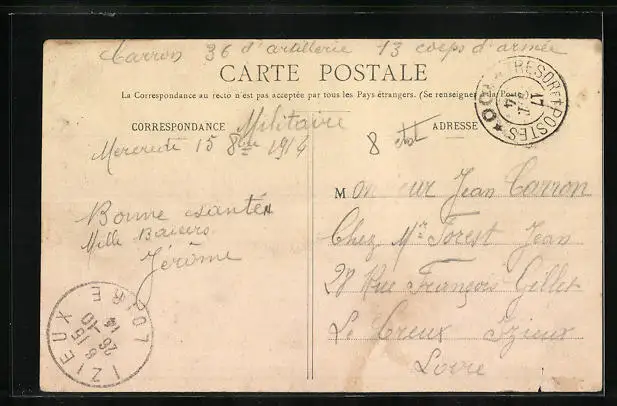 Carron 36 d'artillerie 13 corps d'armée
CARTE POSTALE
La Correspondance au recto n'est pas acceptée par tous les Pays étrangers. (Se renseigner à la Poste
CORRESPONDANCE Militaire
ADRESSE
Mercredi 15 8bre 1914
8
Monsieur Jean Carron
Bonne santé
Mille Baisers
Jérôme
Chez Mr Forest Jean
28 Rue François Gillet
Le Creux Izieux
Loire
TRESOR ET POSTES
17
14
IZIEUX LOIRE
6 15
26 -10
14